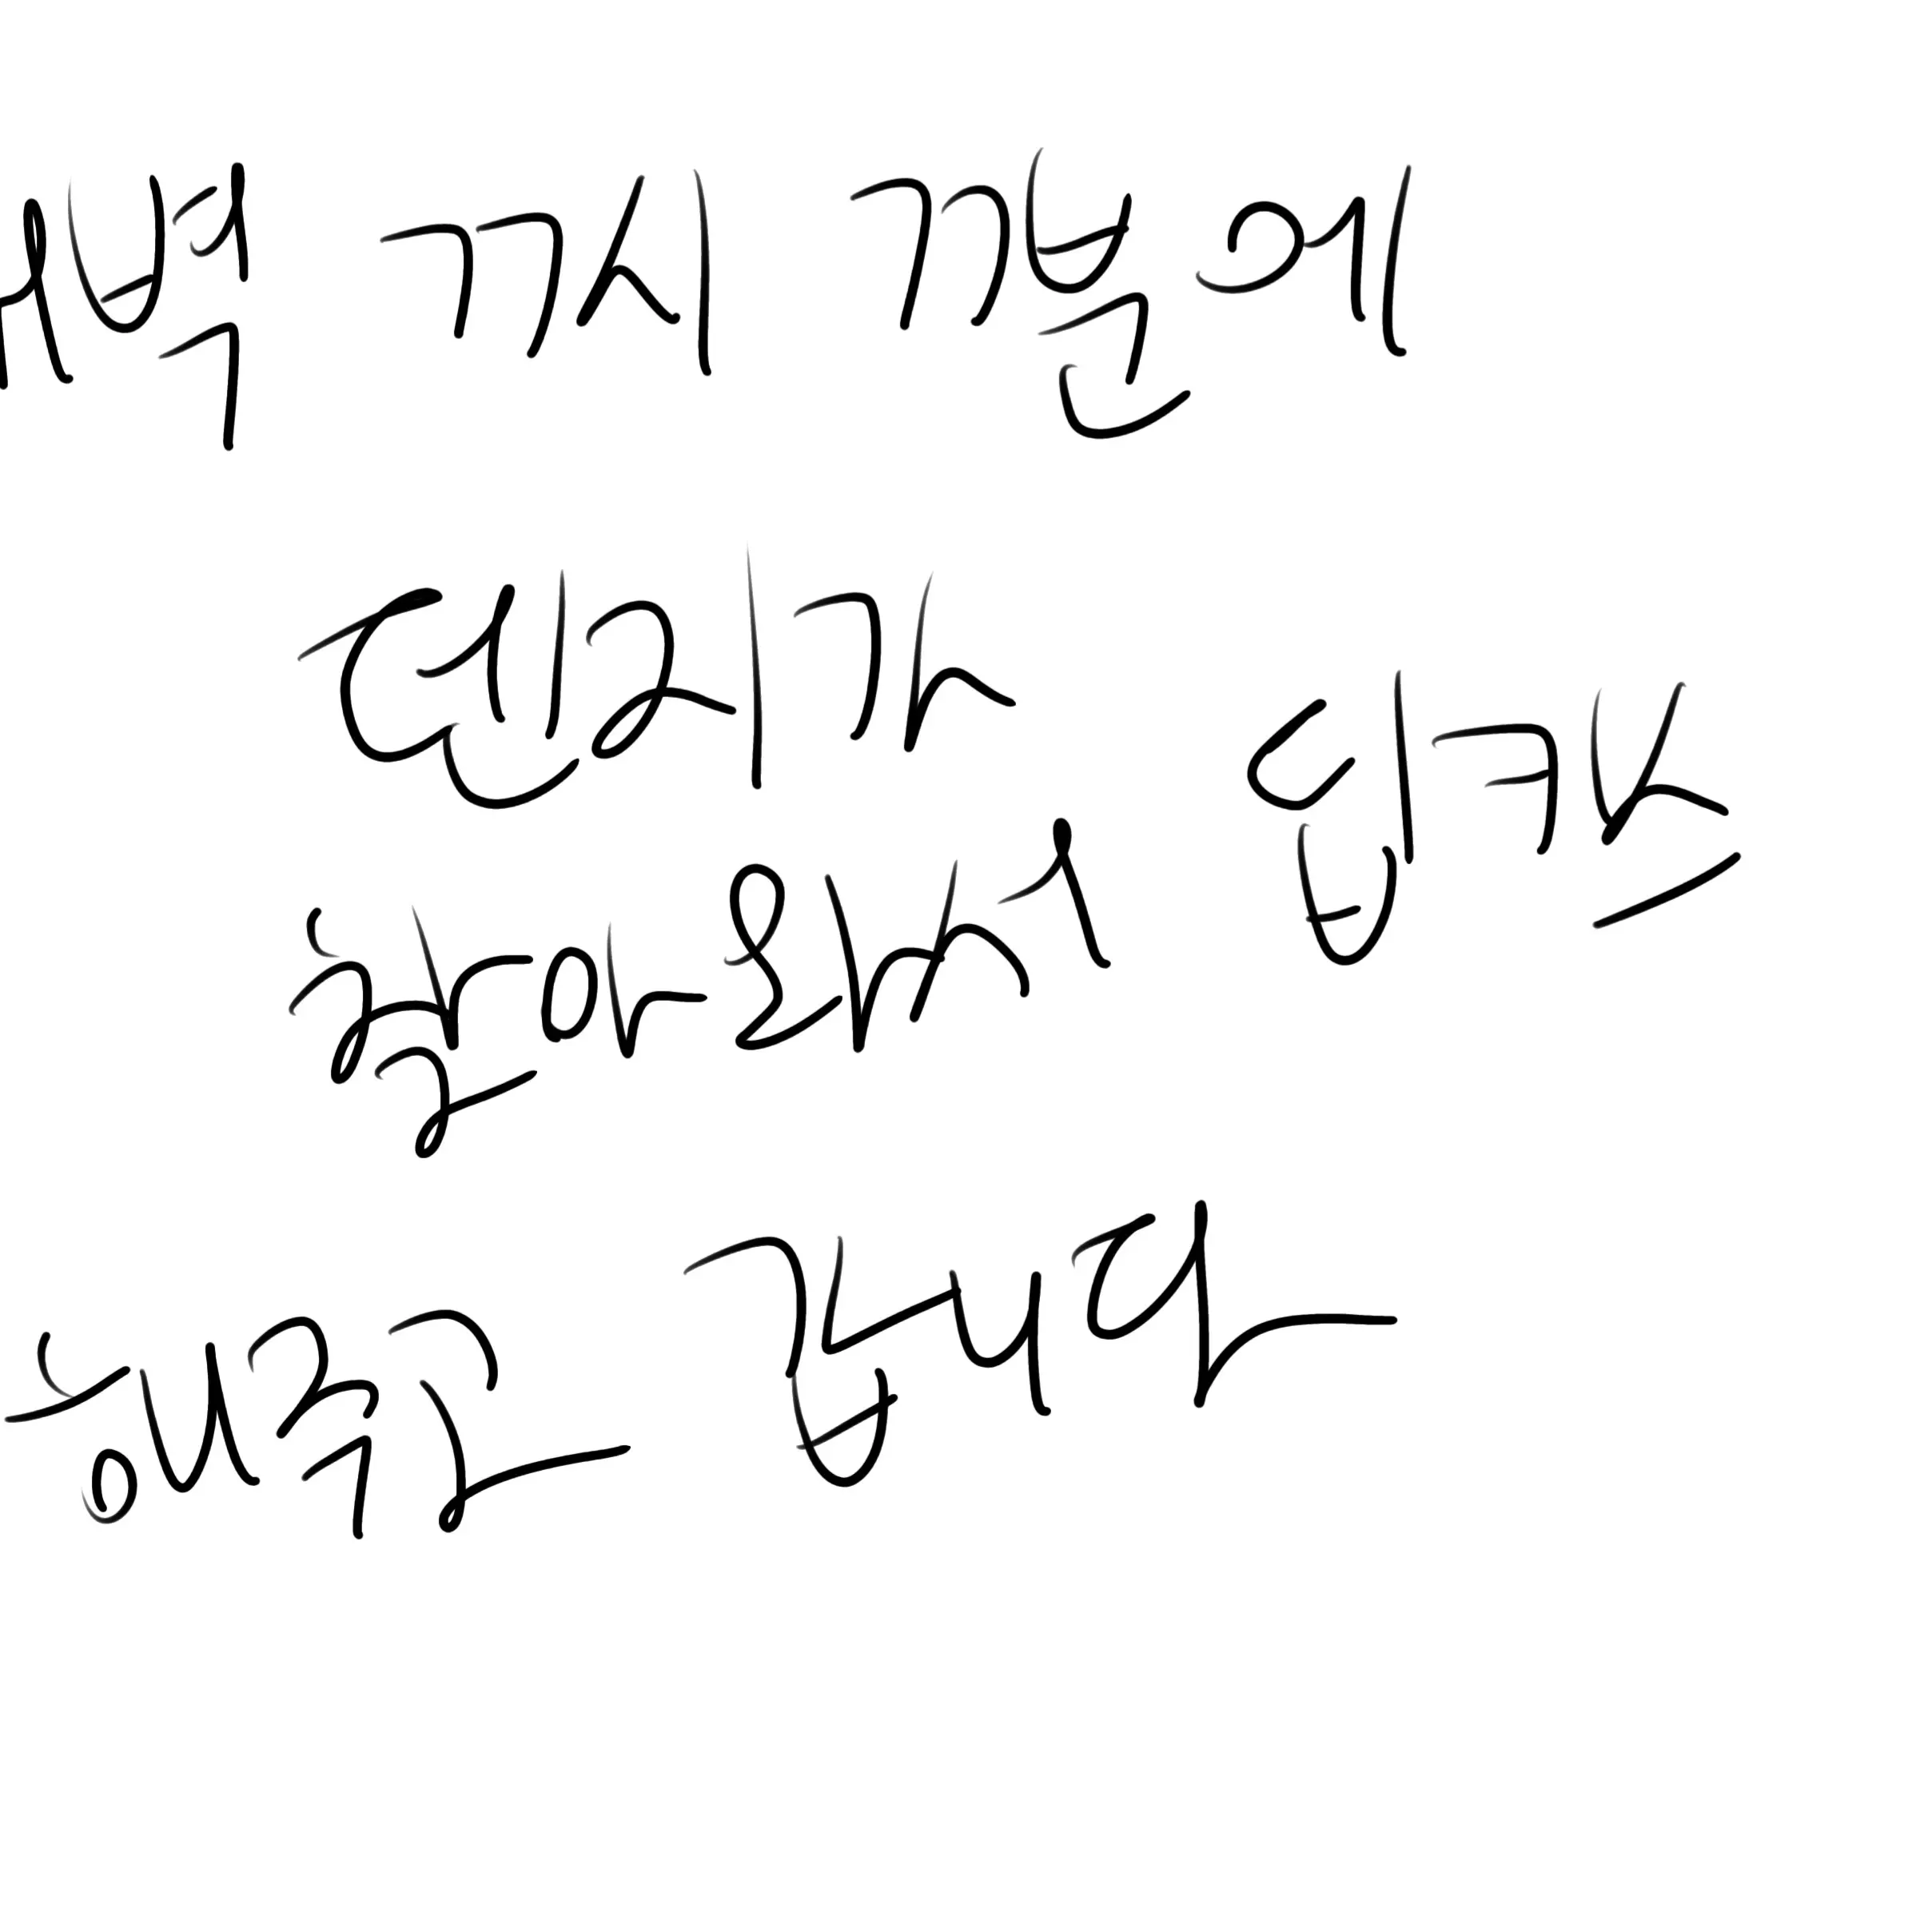 새벽 77시 77분에
덴리가
찾아와서 딥키스
해주고 갑니다